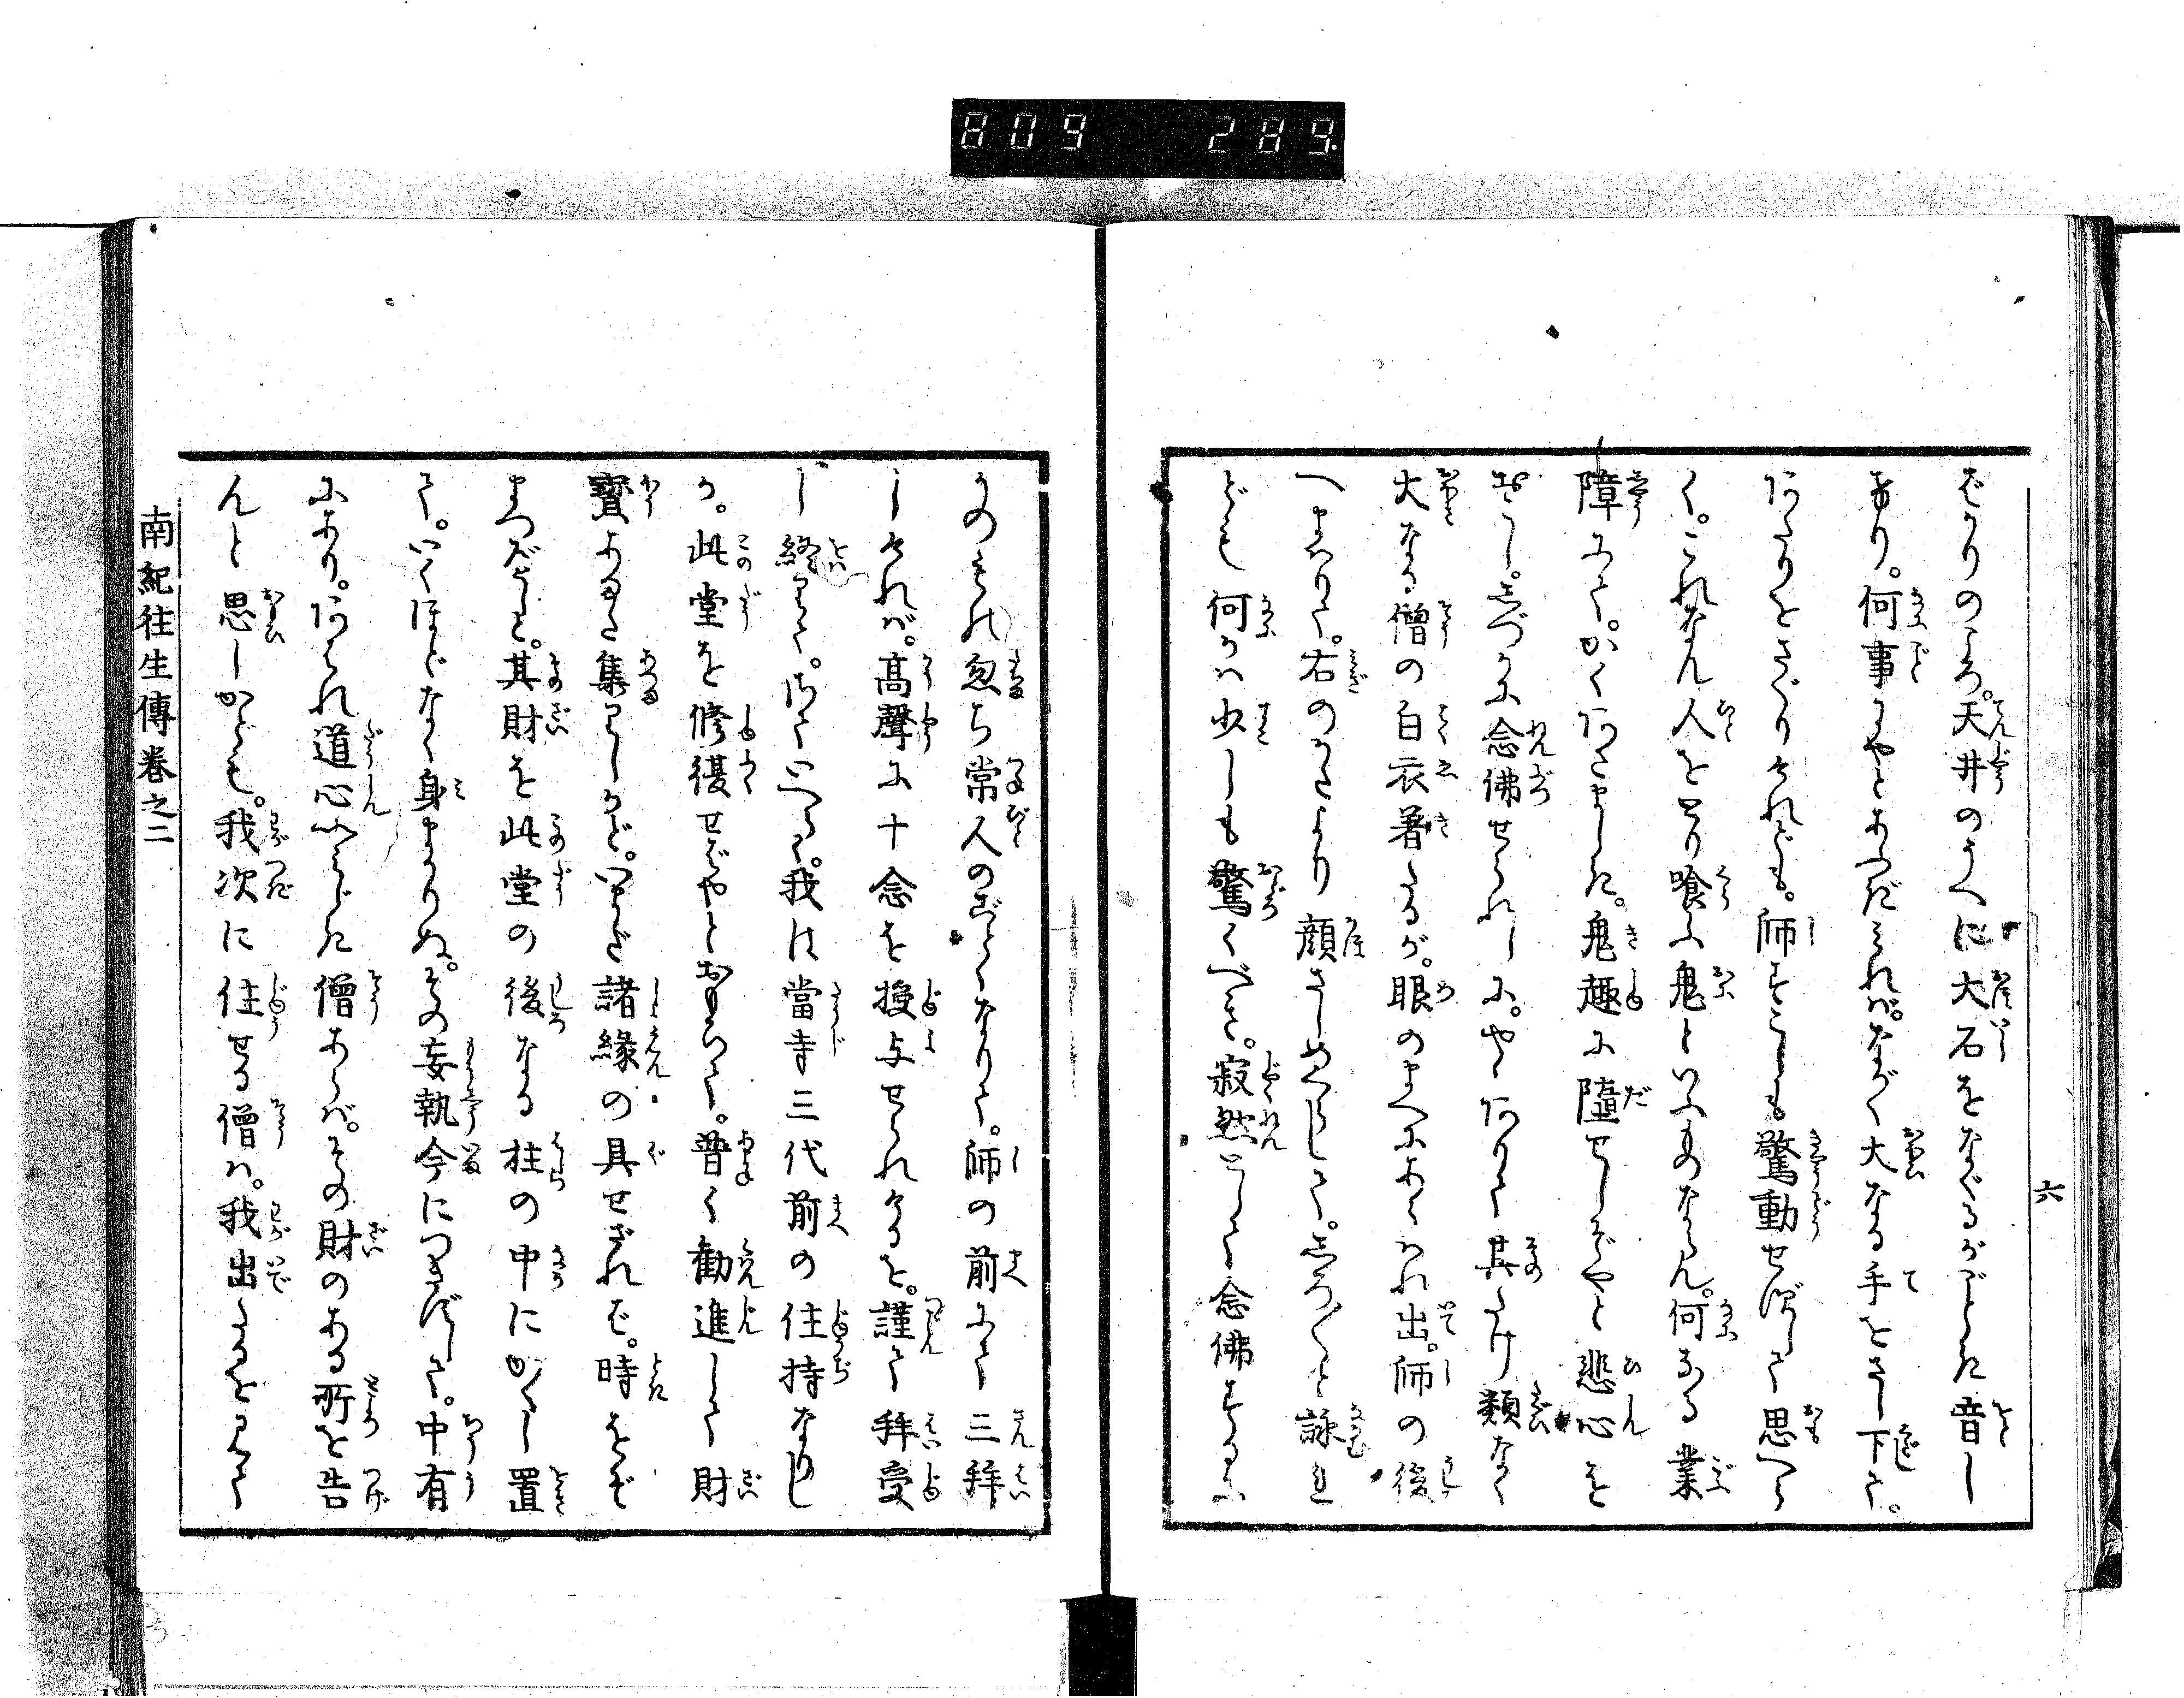 809 289.
六
ばかりのころ。天井のうへに大石をなぐるがごとき音し
けり。何事にやとあふぎみれば。ながく大なる手をさし下て。
あたりをさぐりけれども。師すこしも驚動せずして思へら
く。これなん人をとり喰ふ鬼といふものならん。何なる業
障にて。かくあさましき。鬼趣に墮せしぞやと悲心を
おこし。しづかに念佛せられしに。やゝありて其たけ類なく
大なる僧の白衣著たるが。眼のまへにあらはれ出。師の後
へまはりて。右のかたより顔さしめぐらして。しろ〳〵と詠れ
ども何かは少しも驚くべき。寂然として念佛するに
かのもの忽ち常人のごとくなりて。師の前にて三拜
しければ。高聲に十念を授与せられけるを。謹て拜受
し終りて。泣ていへらく。我は當寺三代前の住持なりし
が。此堂を修復せばやとおもひて。普く勸進して財
寳あまた集りしかど。いまだ諸縁の具せざれば。時をぞ
まつべきと。其財を此堂の後なる柱の中にかくし置
て。いくほどなく身まかりぬ。その妄執今につきずして。中有
にあり。あはれ道心いみじき僧あらば。その財のある所を告
んと思しかども。我次に住せる僧は。我出たるを見て
南紀往生傳巻之二